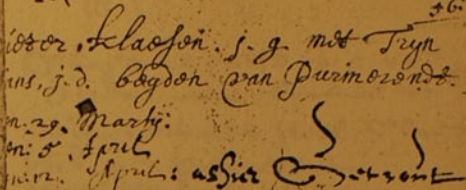 56.
ieter. Klaesen. j. g. met Tryn
ans, j. d. beyden van Purmerende.
en. 29. Martij:
en: 5. April
en: 12. April: alhier Getrout